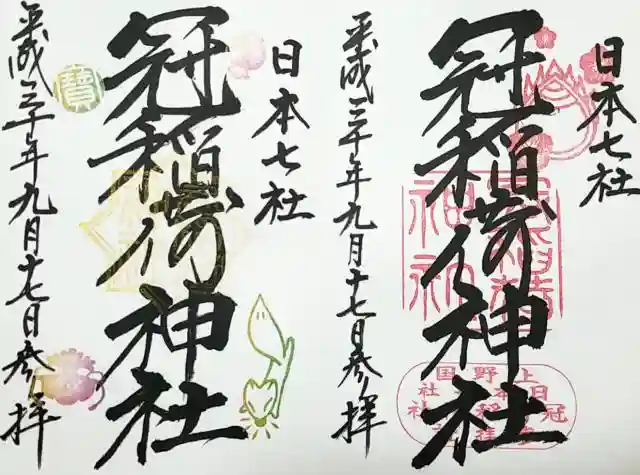 日本七社
冠稲荷神社
平成三十年九月十七日参拝
日本七社
冠稲荷神社
平成三十年九月十七日参拝
寶